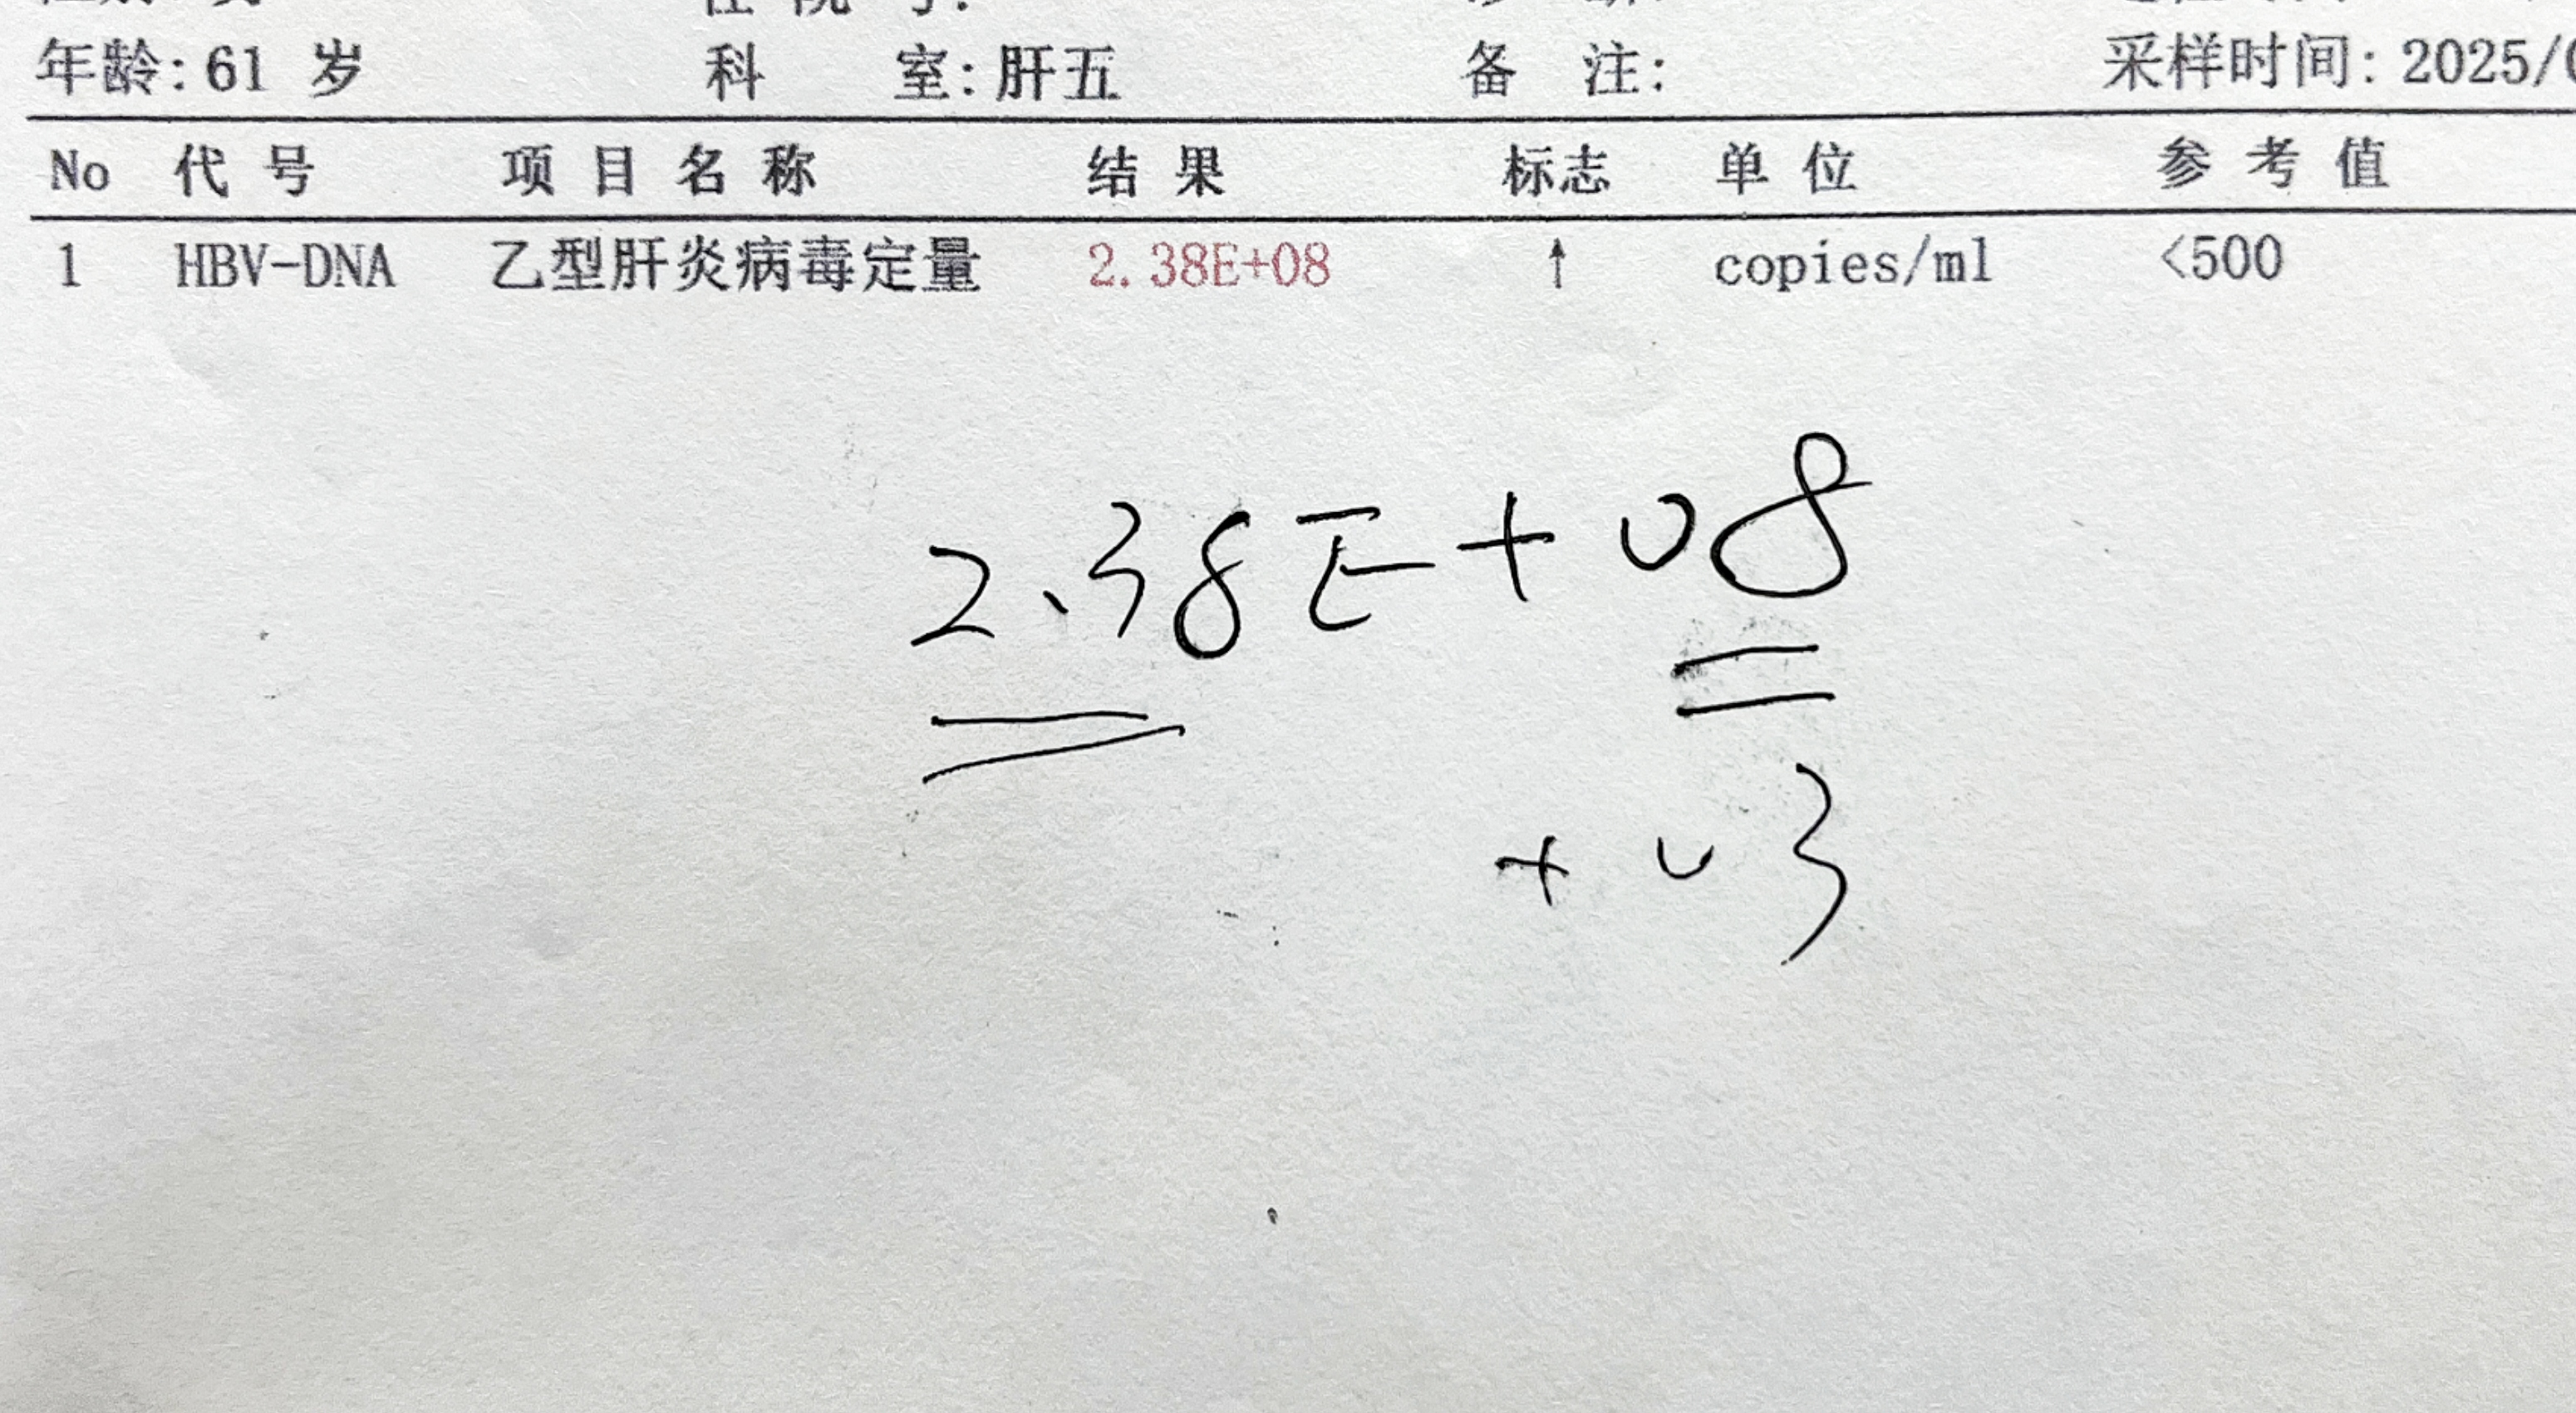 年龄: 61 岁 科 室: 肝五 备 注: 采样时间: 2025/
No 代 号 项 目 名 称 结 果 标志 单 位 参 考 值
1 HBV-DNA 乙型肝炎病毒定量 2.38E+08 ↑ copies/ml <500
2.38E+08
+03